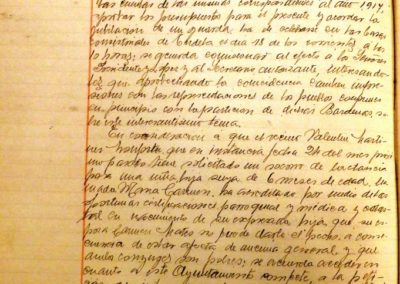 las cuentas de las mismas correspondientes al año 1917,
aprobar los presupuestos para el presente y acordar la
jubilación de un guarda, ha de celebrarse en las Casas
Consistoriales de Tudela el día 18 de los corrientes a las
10 horas; se acuerda comisionar al efecto a los Señores
Presidente y López y al Secretario autorizante, interesando
les que aprovechando la coincidencia cambien impre
siones con los representantes de los pueblos congozantes
en principio con la partición de dichas Bardenas, so
bre este interesantísimo tema.
En consideración a que el vecino Valentín Martí
nez que en instancia fecha 24 del mes próxi
mo pasado tiene solicitado un socorro de lactancia
para una niña hija suya de 6 meses de edad, lla
mada María Carmen, ha acreditado por medio de las
oportunas certificaciones parroquial y médica y catas
tral el nacimiento de su expresada hija, que su es
posa Carmen Mateo no puede darle el pecho a conse
cuencia de estar afecta de anemia general, y que
ambos cónyuges son pobres; se acuerda acceder en
cuanto a este Ayuntamiento compete, a la peti